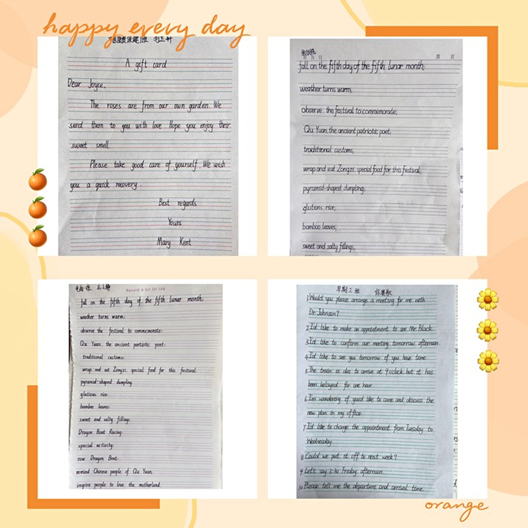 happy every day
A gift card
Dear Joyce,
The roses are from our own garden. We
send them to you with love. Hope you enjoy their
sweet smell.
Please take good care of yourself. We wish
you a quick recovery.
Best regards
Yours
Mary Kent
fall on the fifth day of the fifth lunar month.
weather turns warm,
observe the festival to commemorate,
Qu Yuan, the ancient patriotic poet,
traditional customs,
wrap and eat Zongzi, special food for this festival,
pyramid-shaped dumpling,
glutions rice,
bamboo leaves,
sweet and salty fillings,
fall on the fifth day of the fifth lunar month.
weather turns warm;
observe the festival to commemorate;
Qu Yuan, the ancient partiotic poet;
traditional customs;
wrap and eat Zongzi, special food for this festival
pyramid-shaped dumpling
glutions rice
bamboo leaves
sweet and salty fillings;
Dragon Boat Racing;
special activity;
row Dragon Boat;
remind Chinese people of Qu Yuan,
inspire people to love the motherland
1.Would you please arrange a meeting for me with
Dr. Johnson?
2.I'd like to make an appointment to see Mr. Black.
3.I'd like to confirm our meeting tomorrow afternoon.
4.I'd like to see you tomorrow if you have time.
5.The train is due to arrive at 9 o'clock but it has
been delayed for one hour.
6.I'm wondering if you'd like to come and discuss the
new plan in my office.
7.I'd like to change the appointment from Tuesday to
Wednesday.
8.Could we put it off to next week?
9.Let's say Friday afternoon.
Please tell me the departure and arrival time.
orange